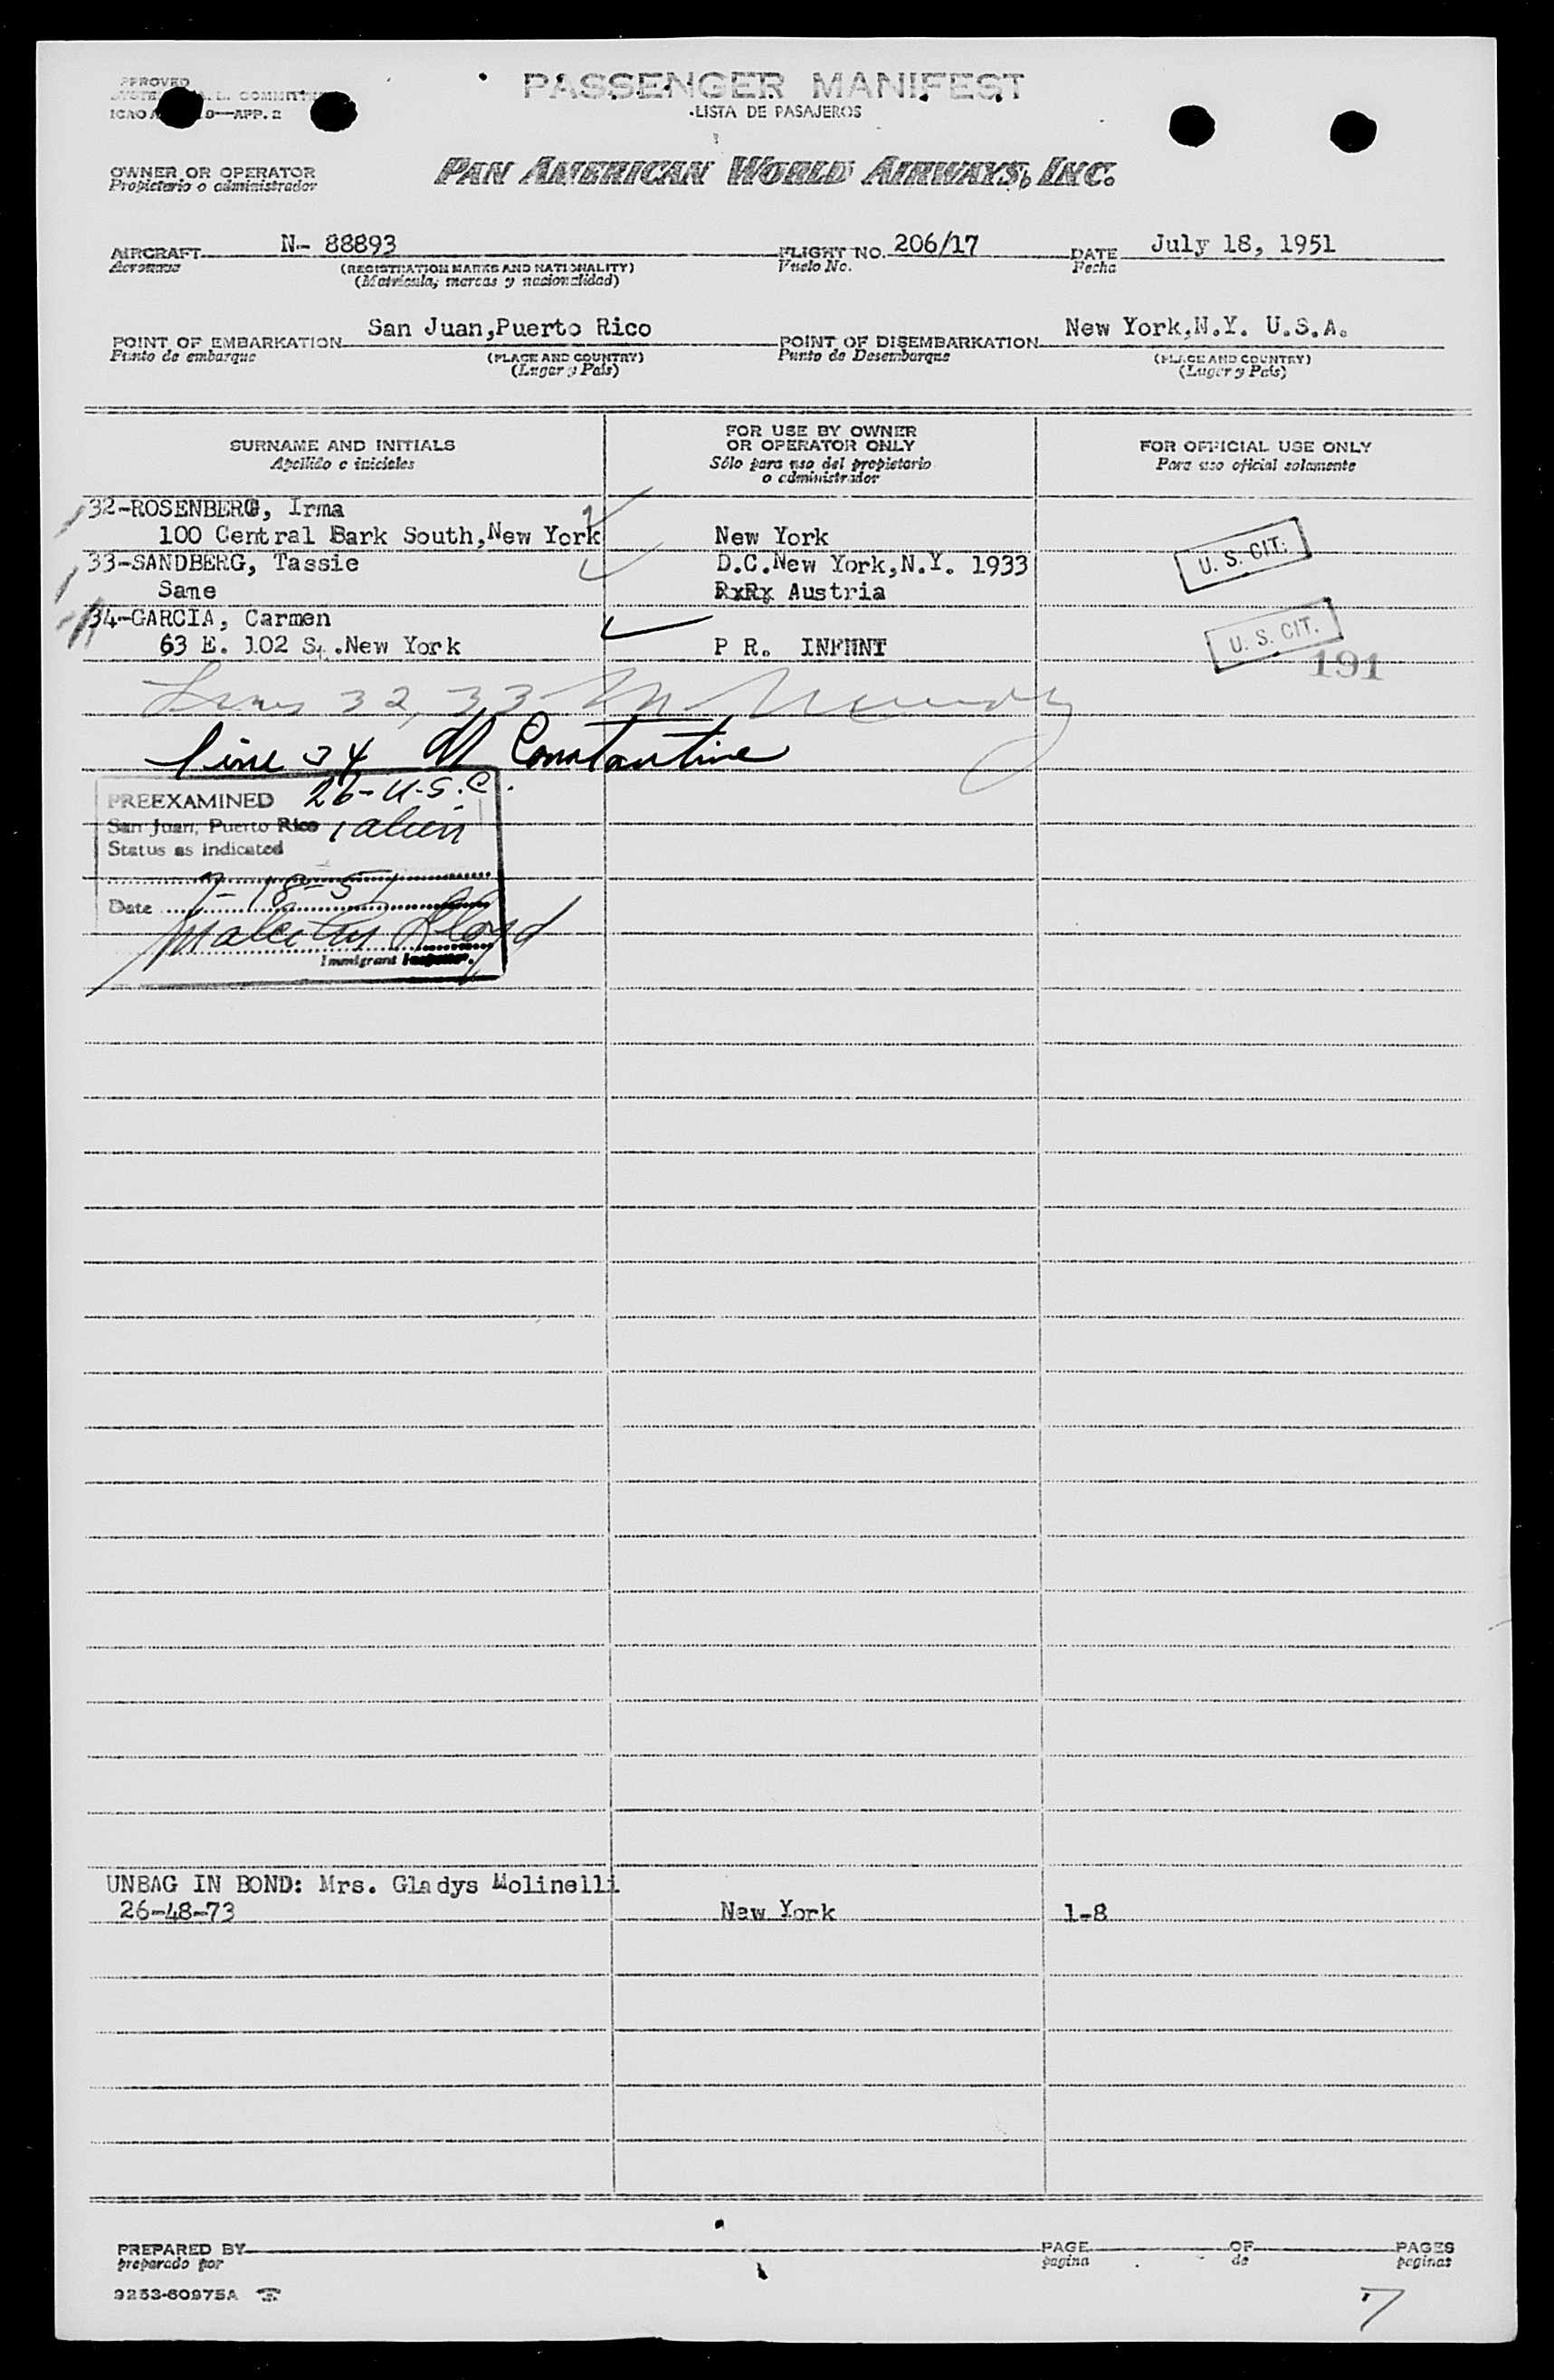 PASSENGER MANIFEST
LISTA DE PASAJEROS
APP. 2
OWNER OR OPERATOR
Propietario o administrador
PAN AMERICAN WORLD AIRWAYS, INC.
AIRCRAFT N- 88893 FLIGHT NO. 206/17 DATE July 18, 1951
Aeronave (REGISTRATION MARKS AND NATIONALITY) Vuelo No. Fecha
(Matrícula, marcas y nacionalidad)
POINT OF EMBARKATION San Juan,Puerto Rico POINT OF DISEMBARKATION New York,N.Y. U.S.A.
Punto de embarque (PLACE AND COUNTRY) Punto de Desembarque (PLACE AND COUNTRY)
(Lugar y País) (Lugar y País)
SURNAME AND INITIALS FOR USE BY OWNER OR OPERATOR ONLY FOR OFFICIAL USE ONLY
Apellido e iniciales Sólo para uso del propietario o administrador Para uso oficial solamente
32-ROSENBERG, Irma
100 Central Bark South,New York New York
33-SANDBERG, Tassie D.C.New York,N.Y. 1933 U. S. CIT.
Same Austria
34-GARCIA, Carmen
63 E. 102 S. .New York P R. INFHNT U. S. CIT.
191
Lines 32, 33
line 34 Constantine
PREEXAMINED 26-U.S.C.
San Juan, Puerto Rico 1 alien
Status as indicated
Date 7-18-51
Lloyd
Immigrant Inspector.
UNBAG IN BOND: Mrs. Gladys Molinelli
26-48-73 New York 1-8
PREPARED BY PAGE OF PAGES
preparado por pagina de paginas
9253-60975A
7